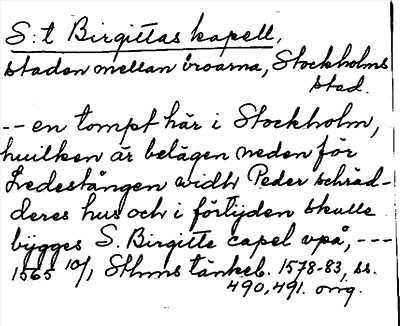 S:t Birgittas kapell,
staden mellan broarna, Stockholms
stad.
-- en tompt här i Stockholm,
huilken är belägen neden för
Ledestången widh Peder schräd-
deres hus och i förtijden skulle
bÿgges S. Birgitte capel vpå, ---
1565 10/1 Sthms tänkeb. 1578-83, ss.
490, 491. orig.